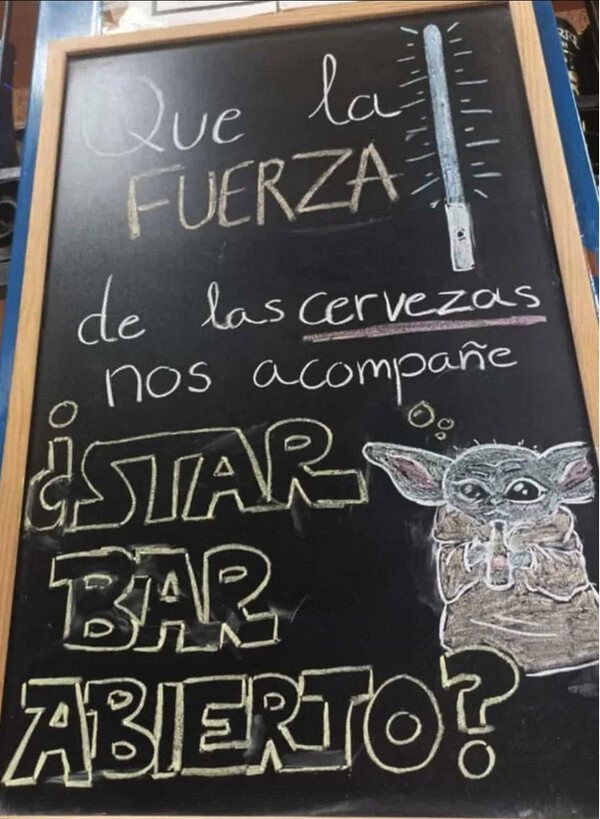 Que la
FUERZA
de las cervezas
nos acompañe
¿STAR
BAR
ABIERTO?